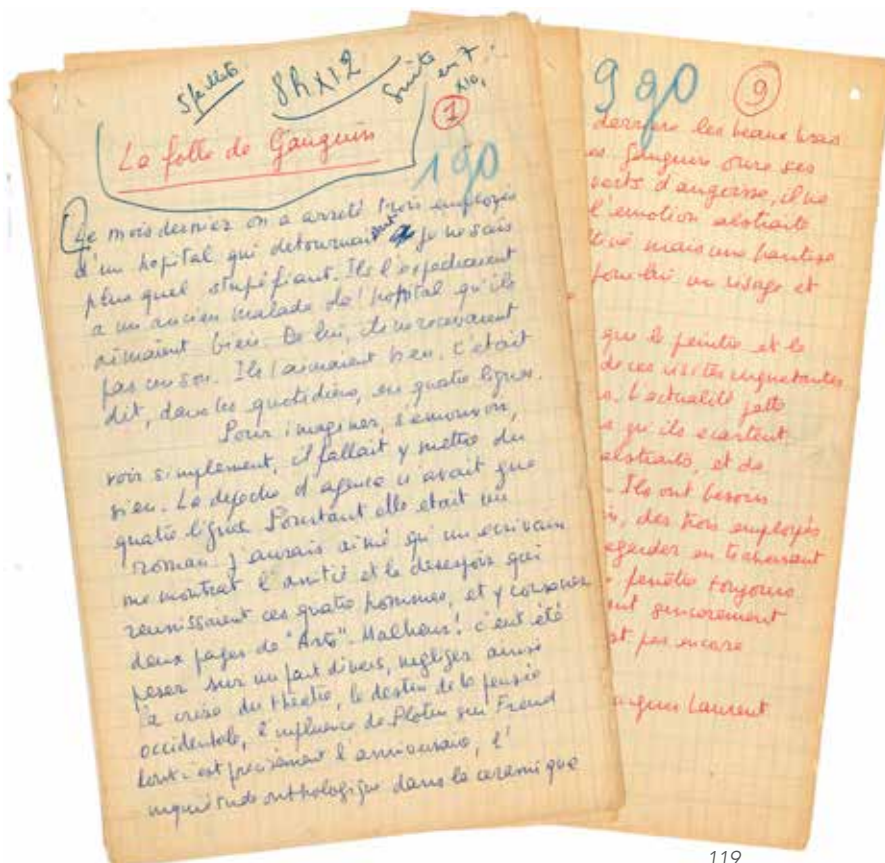 5 feuillets 8h x 12 Suite en 7
x10,
La folle de Gauguin
1
190
Le mois dernier on a arreté trois employés
d'un hopital qui detournaient je ne sais
plus quel stupéfiant. Ils l'expediaient
a un ancien malade de l'hopital qu'ils
aimaient bien. De lui, ils ne recevaient
pas un sou. Ils l'aimaient bien. C'était
dit, dans les quotidiens, en quatre lignes.
Pour imaginer, s'émouvoir,
voir simplement, il fallait y mettre du
sien. La depeche d'agence n'avait que
quatre lignes. Pourtant elle etait un
roman. J'aurais aimé qu'un ecrivain
me montrat l'amitié et le desespoir qui
reunissaient ces quatre hommes, et y consacre
deux pages de "Arts". Malheur! c'eut été
peser sur un fait divers, negliger aussi
la crise du théatre, le destin de la pensée
occidentale, l'influence de Plotin sur Freud
dont c'est precisement l'anniversaire, l'
inquietude onthologique dans la ceramique
990
9
derriere les beaux bras
Gauguin ouvre ses
verts d'angoisse, il ne
l'emotion abstraite
mais une hantise
pour lui un visage et
que le peintre et le
de ces visites inquietantes
L'actualité jette
qu'ils ecartent
abstraits, et de
Ils ont besoin
des trois employés
regarder en
fenêtre toujours
sincerement
pas encore
Jacques Laurent
119